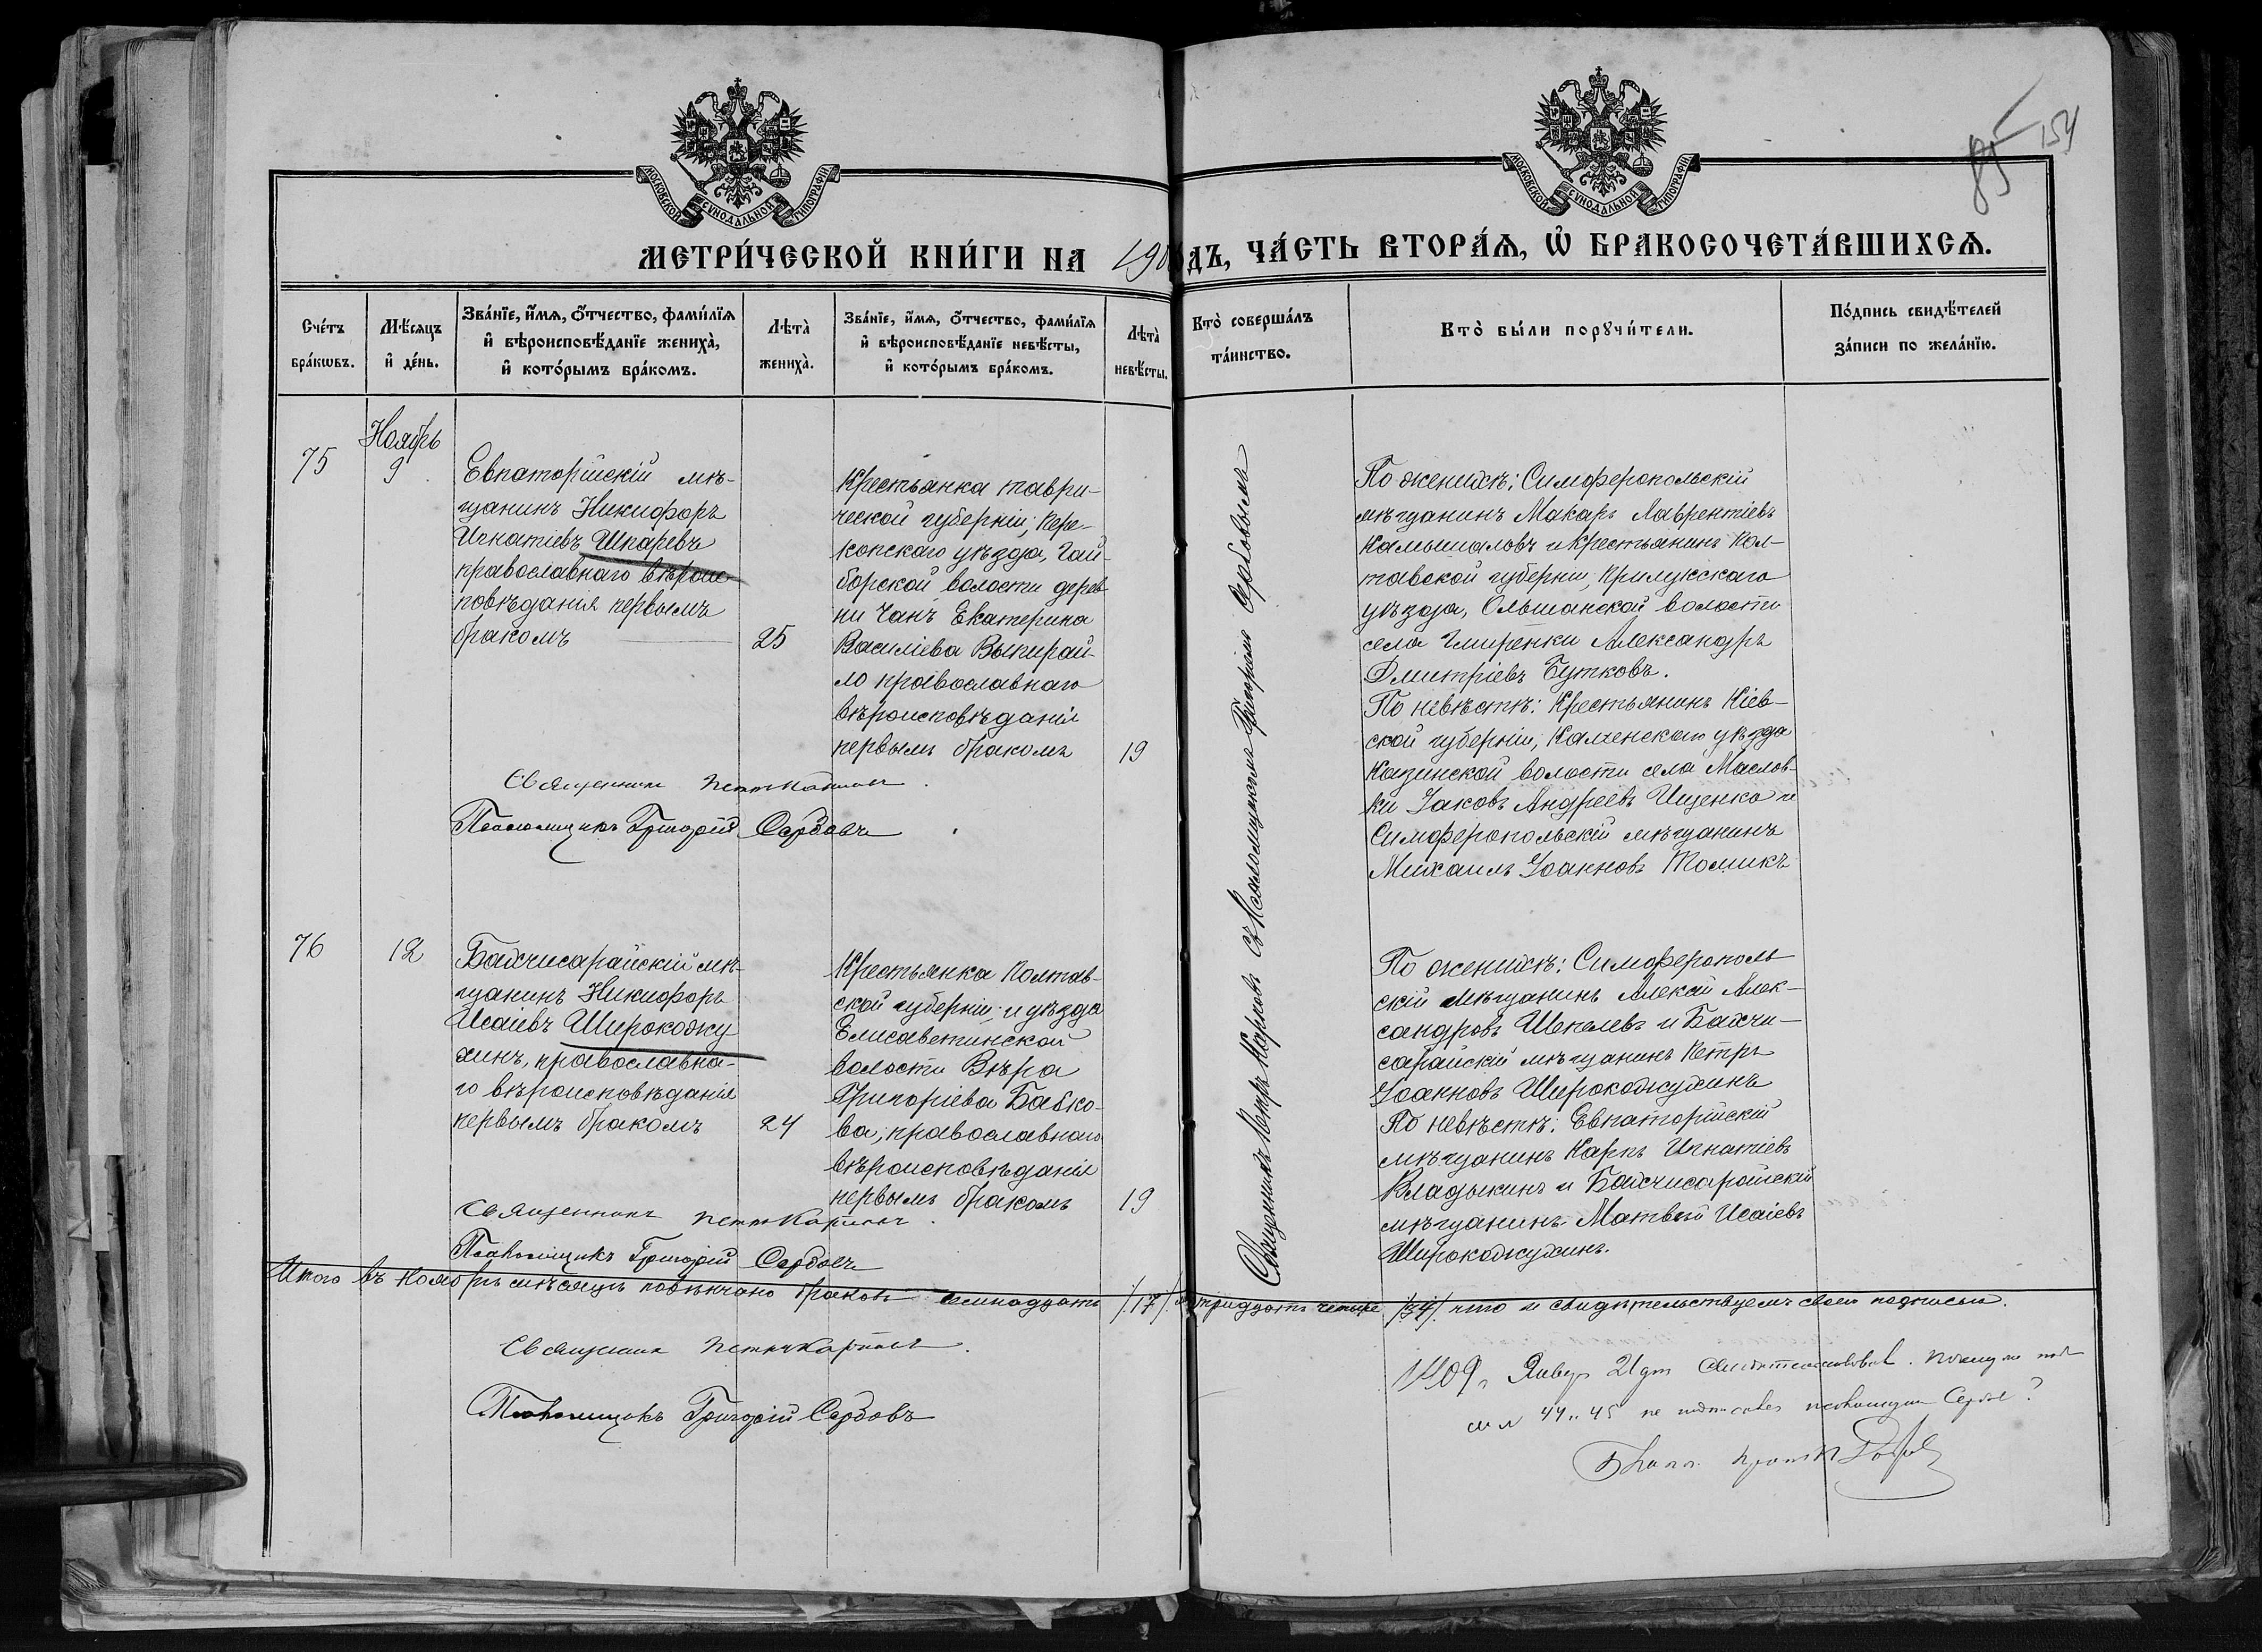 85 154
МОСКОВСКОЙ СѴНОДАЛЬНОЙ ТИПОГРАФІИ
МОСКОВСКОЙ СѴНОДАЛЬНОЙ ТИПОГРАФІИ
МЕТРИ́ЧЕСКОЙ КНИ́ГИ НА 190 ДЪ, ЧА́СТЬ ВТОРА́Ѧ, Ѡ҆ БРАКОСОЧЕТА́ВШИХСѦ.
Сче́тъ бра́кѡвъ.
Мѣ́сѧцъ и҆ де́нь.
Зва́нїе, и҆́мѧ, ѻ҆́тчество, фами́лїѧ
и҆ вѣроисповѣ́данїе жениха̀,
и҆ кото́рымъ бра́комъ.
Лѣта̀ жениха̀.
Зва́нїе, и҆́мѧ, ѻ҆́тчество, фами́лїѧ
и҆ вѣроисповѣ́данїе невѣ́сты,
и҆ кото́рымъ бра́комъ.
Лѣта̀ невѣ́сты.
Кто̀ соверша́лъ та́инство.
Кто̀ бы́ли порꙋчи́тели.
По́дпись свидѣ́телей
за́писи по жела́нїю.
Ноябрь
75
9
Евпаторійскій мѣ-
щанинъ Никифоръ
Игнатіевъ Шкаревъ
православнаго вѣроис-
повѣданія первымъ
бракомъ
25
Крестьянка таври-
ческой губерніи, Пере-
копскаго уѣзда,
борской волости дерев-
ни Чанъ Екатерина
Василіева Выпирай-
ло православнаго
вѣроисповѣданія
первымъ бракомъ
19
Священникъ Петръ Карповъ
Псаломщикъ Григорій Сербовъ
Священникъ Петръ Карповъ съ псаломщикомъ Григоріемъ Сербовымъ
По женихѣ: Симферопольскій
мѣщанинъ Макаръ Лаврентіевъ
Камышаловъ и крестьянинъ Пол-
тавской губерніи, Прилукскаго
уѣзда, Ольшанской волости
села Гмиренки Александръ
Дмитріевъ Бутковъ.
По невѣстѣ: Крестьянинъ Кіев-
ской губерніи, Каневскаго уѣзда
Козинской волости села Маслов-
ки Іаковъ Андреевъ Ищенко и
Симферопольскій мѣщанинъ
Михаилъ Іоанновъ Томикъ
76
12
Бахчисарайскій мѣ-
щанинъ Никифоръ
Исаіевъ Широкожу
хинъ, православна-
го вѣроисповѣданія
первымъ бракомъ
24
Крестьянка Полтав-
ской губерніи, и уѣзда
Елисаветинской
волости Вѣра
Григоріева Бабко-
ва, православнаго
вѣроисповѣданія
первымъ бракомъ
19
По женихѣ: Симферополь
скій мѣщанинъ Алексій Алек-
сандровъ Шепелевъ и Бахчи-
сарайскій мѣщанинъ Петръ
Іоанновъ Широкожухинъ
По невѣстѣ: Евпаторійскій
мѣщанинъ Карпъ Игнатіевъ
Владыкинъ и Бахчисарайскій
мѣщанинъ Матвѣй Исаіевъ
Широкожухинъ.
Священникъ Петръ Карповъ
Псаломщикъ Григорій Сербовъ
Итого въ ноябрѣ мѣсяцѣ повѣнчано браковъ семнадцать /17/ и тридцать четыре /34/ что и свидѣтельствуемъ своею подписью.
Священникъ Петръ Карповъ
Псаломщикъ Григорій Сербовъ
1909 г. Январ 21 дня Почему на
44 и 45 не псаломщикъ Сербовъ?